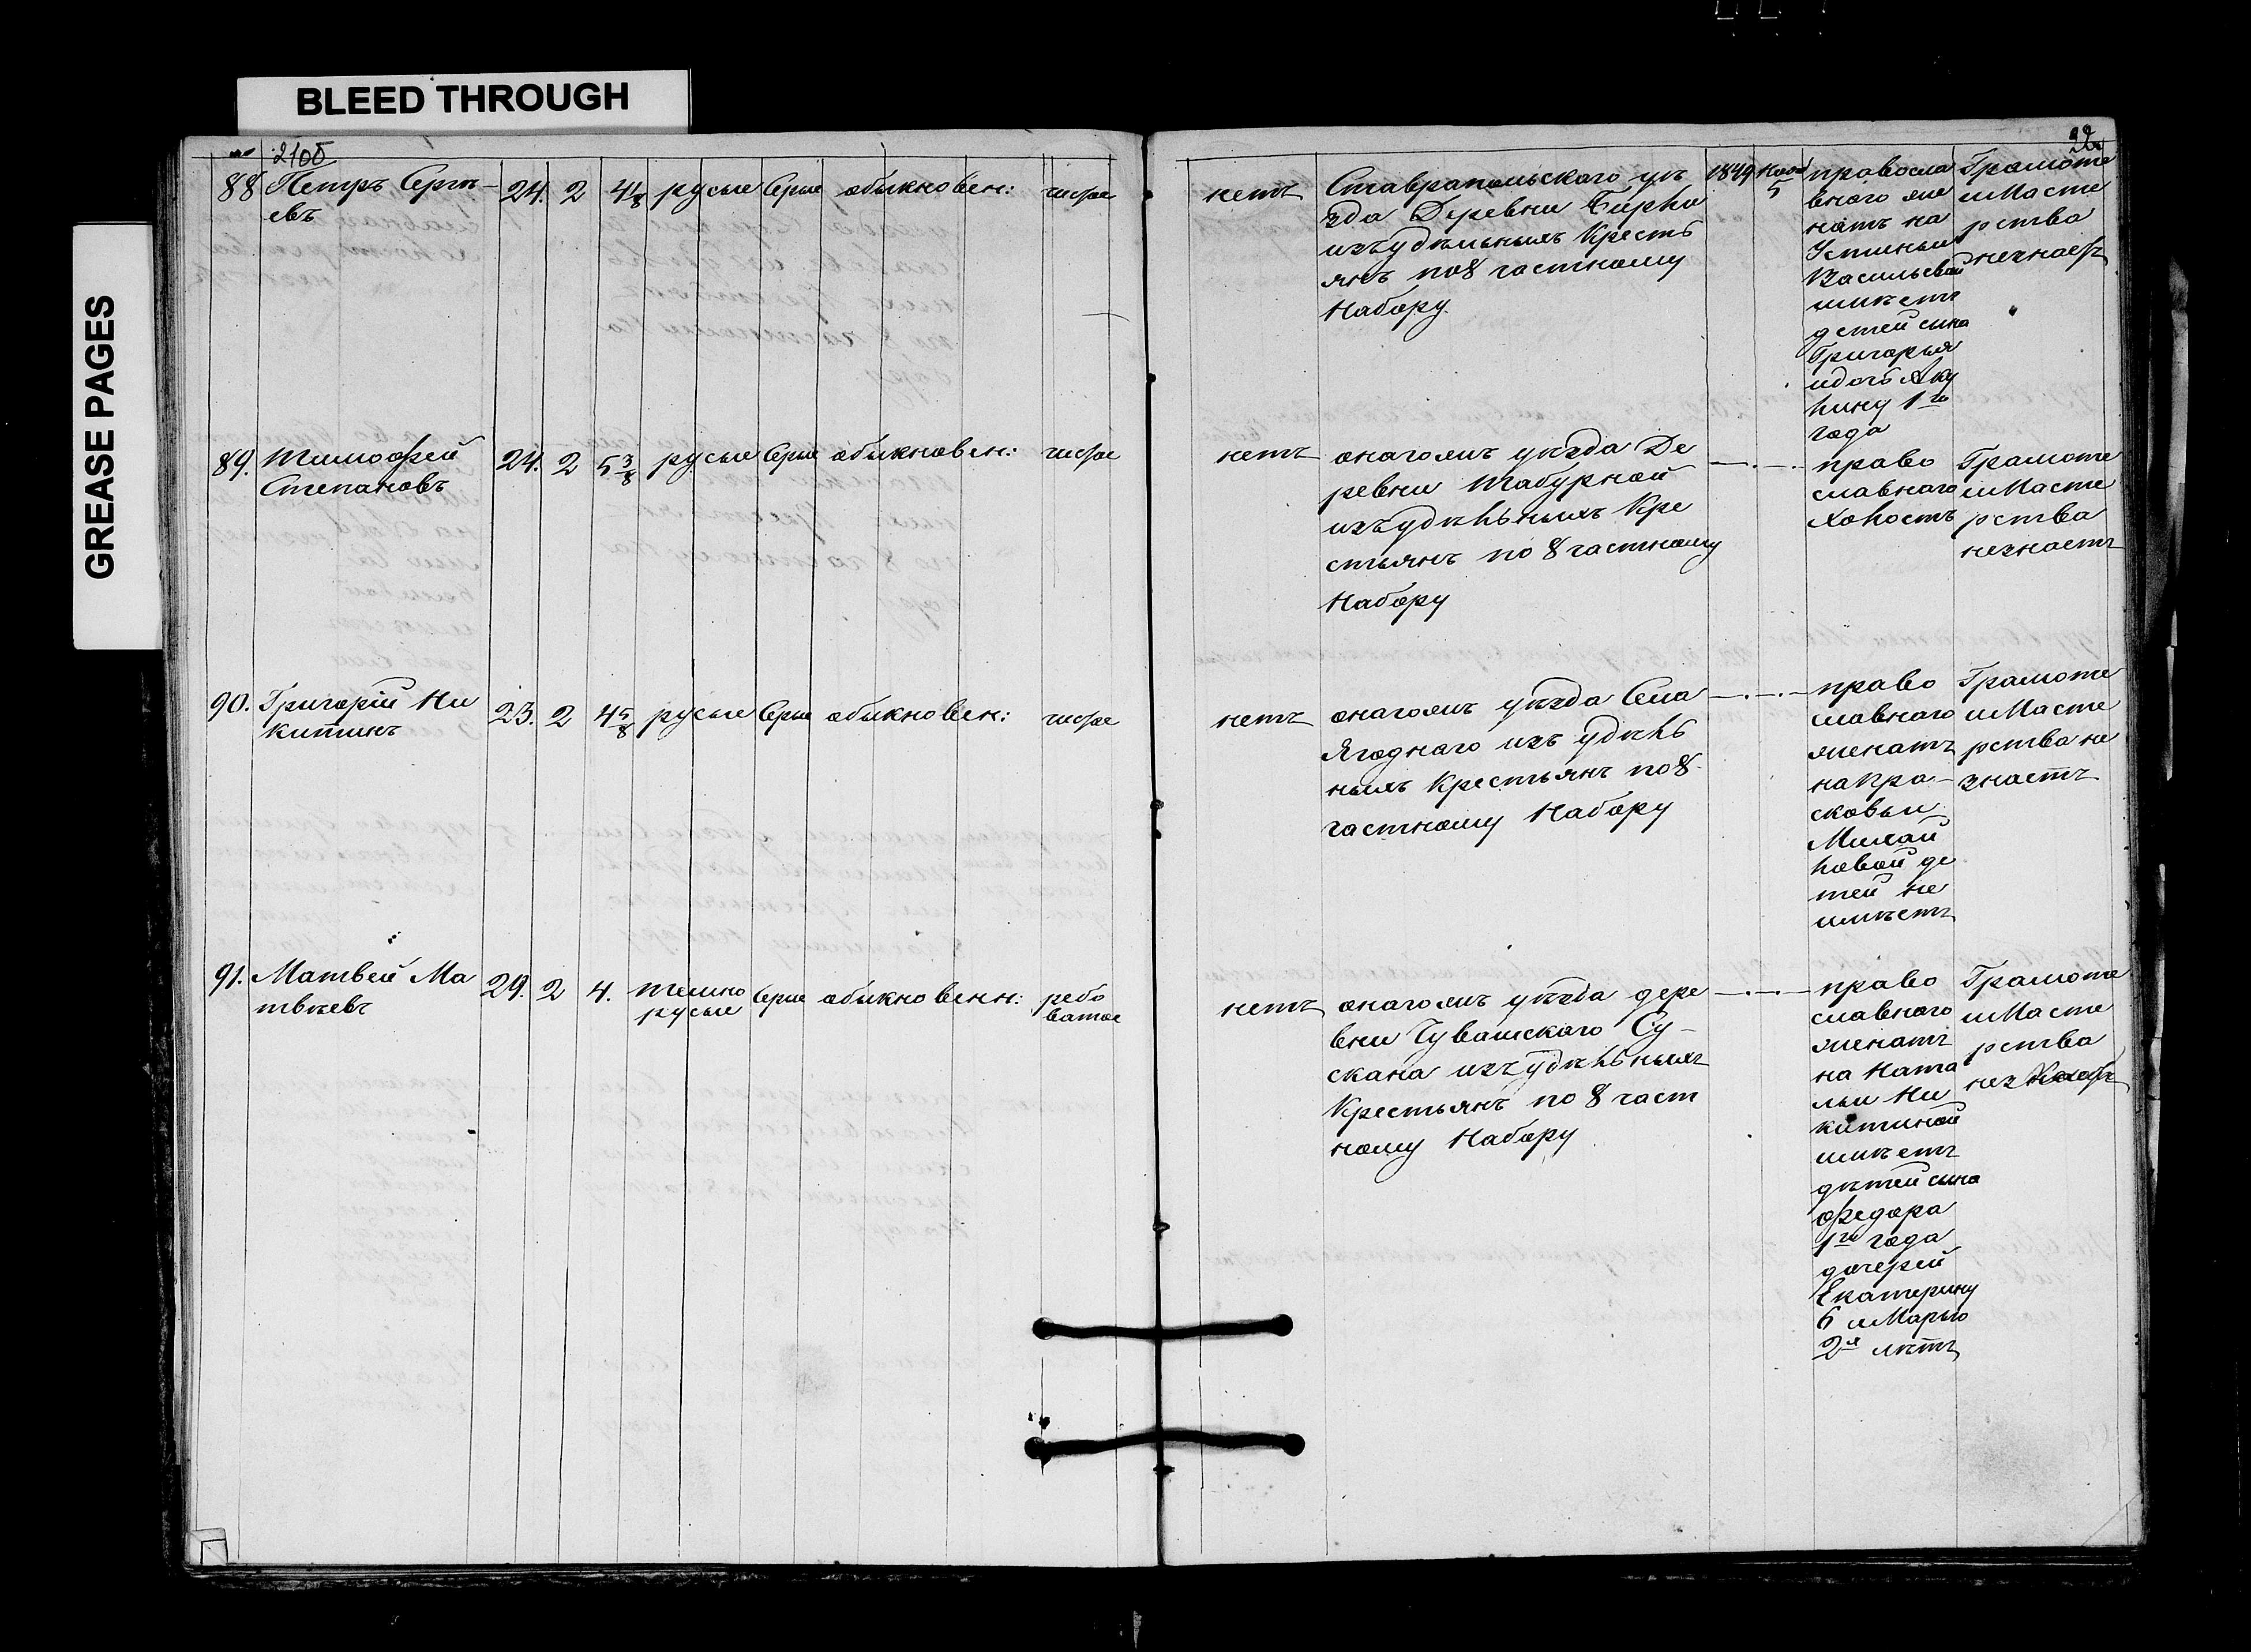 BLEED THROUGH
GREASE PAGES
210б
22
88 Петръ Серге-
евъ
24. 2 4 1/8 русые Серые обыкновен: чистое
нетъ
Ставрапольскаго уѣ
зда Деревни Бирли
изъ удѣльныхъ Кресть
янъ по 8 частному
Набору.
1849 Нояб
5
правосла
внаго же
натъ на
Устиньи
Васильевой
имѣетъ
детей сына
Григорья
и дочь Аку
лину 1го
года
Грамоте
и Масте
рства
незнаетъ
89. Тимофей
Степановъ
24. 2 5 3/8 русые Серые обыкновен: чистое
нетъ
онагожъ уѣзда Де
ревни Табурной
изъ удѣльныхъ Кре
стьянъ по 8 частному
Набору
—·—·—
право
славнаго
Холостъ
Грамоте
и Масте
рства
незнаетъ
90. Григорій Ни
китинъ
23. 2 4 5/8 русые Серые обыкновен: чистое
нетъ
онагожъ уѣзда Села
Ягоднаго изъ удѣль
ныхъ Крестьянъ по 8
частному Набору
—·—·—
право
славнаго
женатъ
на Пра-
сковьи
Михай
ловой де
тей не
имѣетъ
Грамоте
и Масте
рства не
знаетъ
91. Матвей Ма
твѣевъ
29. 2 4. темно
русые
Серые обыкновенн: ребо
ватое
нетъ
онагожъ уѣзда дере
вни Чувашскаго Су-
скана изъ удѣльныхъ
Крестьянъ по 8 част
ному Набору
—·—·—
право
славнаго
женатъ
на Ната
льи Ни
китиной
имѣетъ
дѣтей сына
Федора
1го года
дочерей
Екатерину
6 и Марью
2х лѣтъ
Грамоте
и Масте
рства
незнаетъ